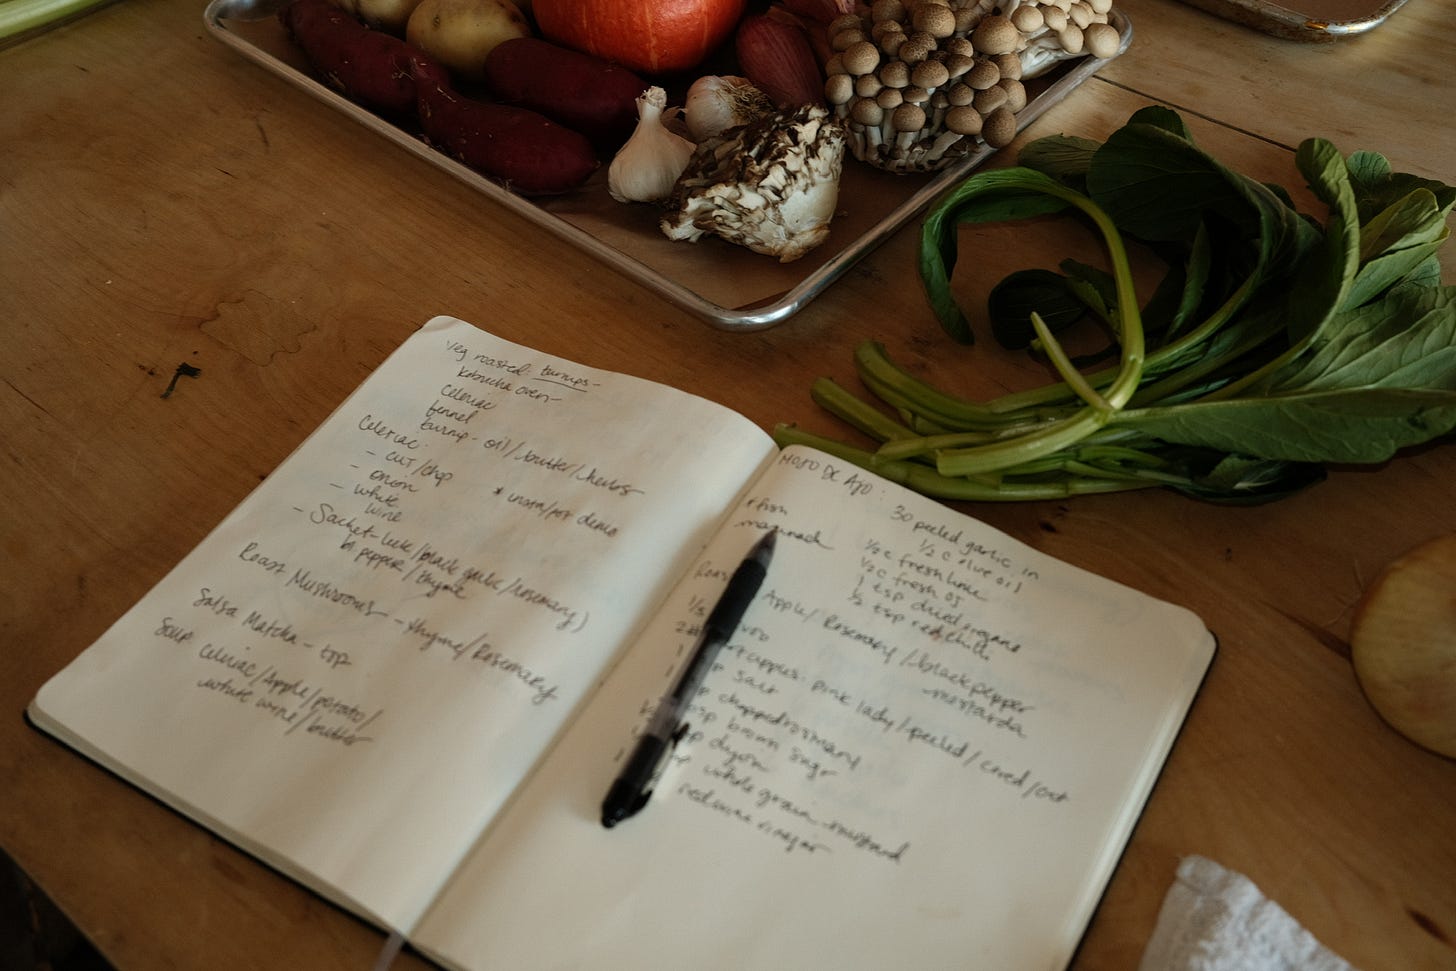 veg roasted: turnips-
kabocha oven-
celeriac
fennel
turnip - oil/butter/herbs
Celeriac:
- cut/chop
- onion * insta/pot demo
- white
wine
- Sachet - leek/black garlic/rosemary)
bl. pepper/thyme
Roast Mushrooms - thyme/Rosemary
Salsa Matcha - top
Soup celeriac/Apple/potato/
white wine/butter
MOJO DE AJO: 30 peeled garlic in
1/2 c olive oil
marinade 1/2 c fresh lime
1/2 c fresh oj
1 tsp dried oregano
1/2 tsp red chili
Apple/Rosemary/black pepper
mostarda
apples: pink lady/peeled/cored/cut
salt
chopped rosemary
brown sugr
dijon
whole grain mustard
red wine vinegar